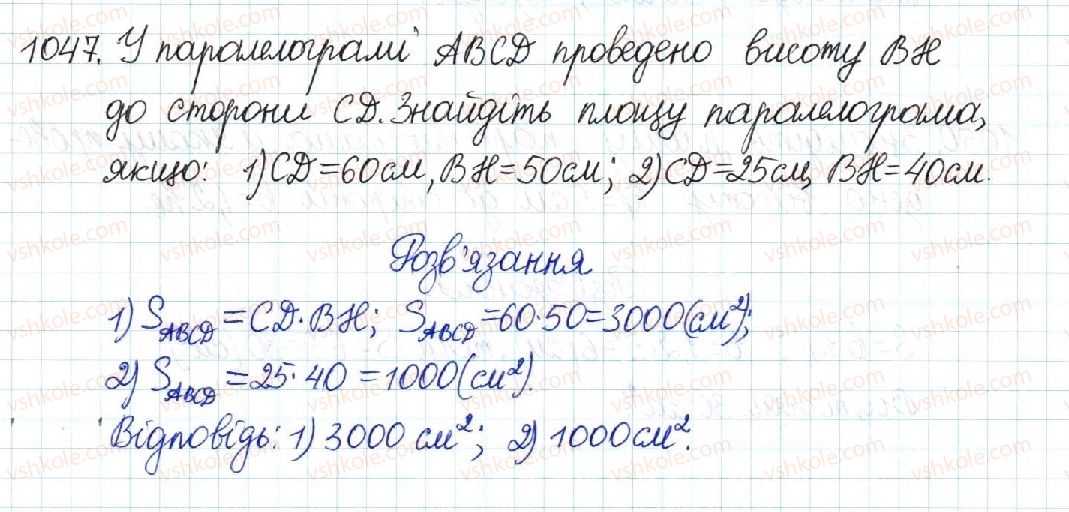 1047. У паралелограмі ABCD проведено висоту BH
до сторони CD. Знайдіть площу паралелограма,
якщо: 1) CD=60см, BH=50см; 2) CD=25см, BH=40см.
Розв'язання
1) S_ABCD = CD·BH; S_ABCD = 60·50 = 3000 (см²);
2) S_ABCD = 25·40 = 1000 (см²).
Відповідь: 1) 3000 см²; 2) 1000 см².
vshkole.com